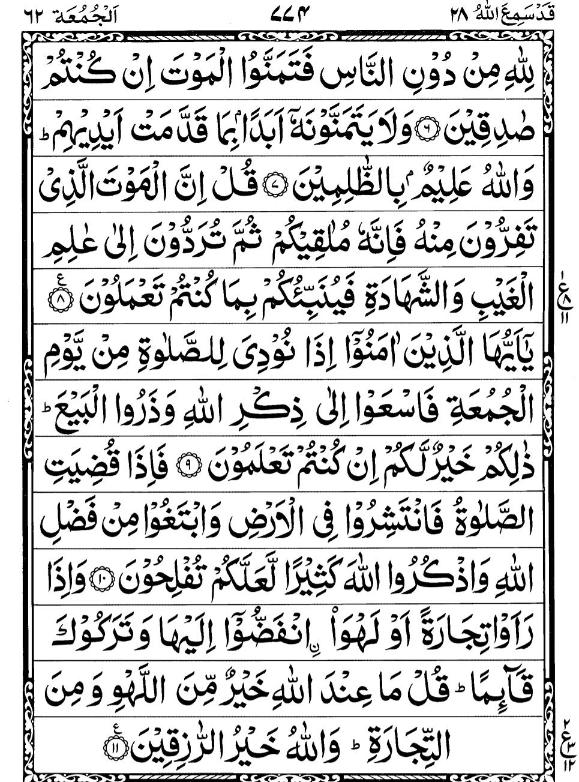 قَدْسَمِعَ اللّٰهُ ٢٨ ٧٧٤ اَلْجُمُعَة ٦٢
لِلّٰهِ مِنْ دُوْنِ النَّاسِ فَتَمَنَّوُا الْمَوْتَ اِنْ كُنْتُمْ
صٰدِقِيْنَ ۝٦ وَلَا يَتَمَنَّوْنَهٗٓ اَبَدًۢا بِمَا قَدَّمَتْ اَيْدِيْهِمْ ؕ
وَاللّٰهُ عَلِيْمٌۢ بِالظّٰلِمِيْنَ ۝٧ قُلْ اِنَّ الْمَوْتَ الَّذِىْ
تَفِرُّوْنَ مِنْهُ فَاِنَّهٗ مُلٰقِيْكُمْ ثُمَّ تُرَدُّوْنَ اِلٰى عٰلِمِ
الْغَيْبِ وَالشَّهَادَةِ فَيُنَبِّئُكُمْ بِمَا كُنْتُمْ تَعْمَلُوْنَ ۝٨ ع
١ ع ٨ ١١
يٰٓاَيُّهَا الَّذِيْنَ اٰمَنُوْٓا اِذَا نُوْدِىَ لِلصَّلٰوةِ مِنْ يَّوْمِ
الْجُمُعَةِ فَاسْعَوْا اِلٰى ذِكْرِ اللّٰهِ وَذَرُوا الْبَيْعَ ؕ
ذٰلِكُمْ خَيْرٌ لَّكُمْ اِنْ كُنْتُمْ تَعْلَمُوْنَ ۝٩ فَاِذَا قُضِيَتِ
الصَّلٰوةُ فَانْتَشِرُوْا فِى الْاَرْضِ وَابْتَغُوْا مِنْ فَضْلِ
اللّٰهِ وَاذْكُرُوا اللّٰهَ كَثِيْرًا لَّعَلَّكُمْ تُفْلِحُوْنَ ۝١٠ وَاِذَا
رَاَوْا تِجَارَةً اَوْ لَهْوَا۟ ۨانْفَضُّوْٓا اِلَيْهَا وَتَرَكُوْكَ
قَآئِمًا ؕ قُلْ مَا عِنْدَ اللّٰهِ خَيْرٌ مِّنَ اللَّهْوِ وَمِنَ
التِّجَارَةِ ؕ وَاللّٰهُ خَيْرُ الرّٰزِقِيْنَ ۝١١ ع
٢ ع ٣ ١٢